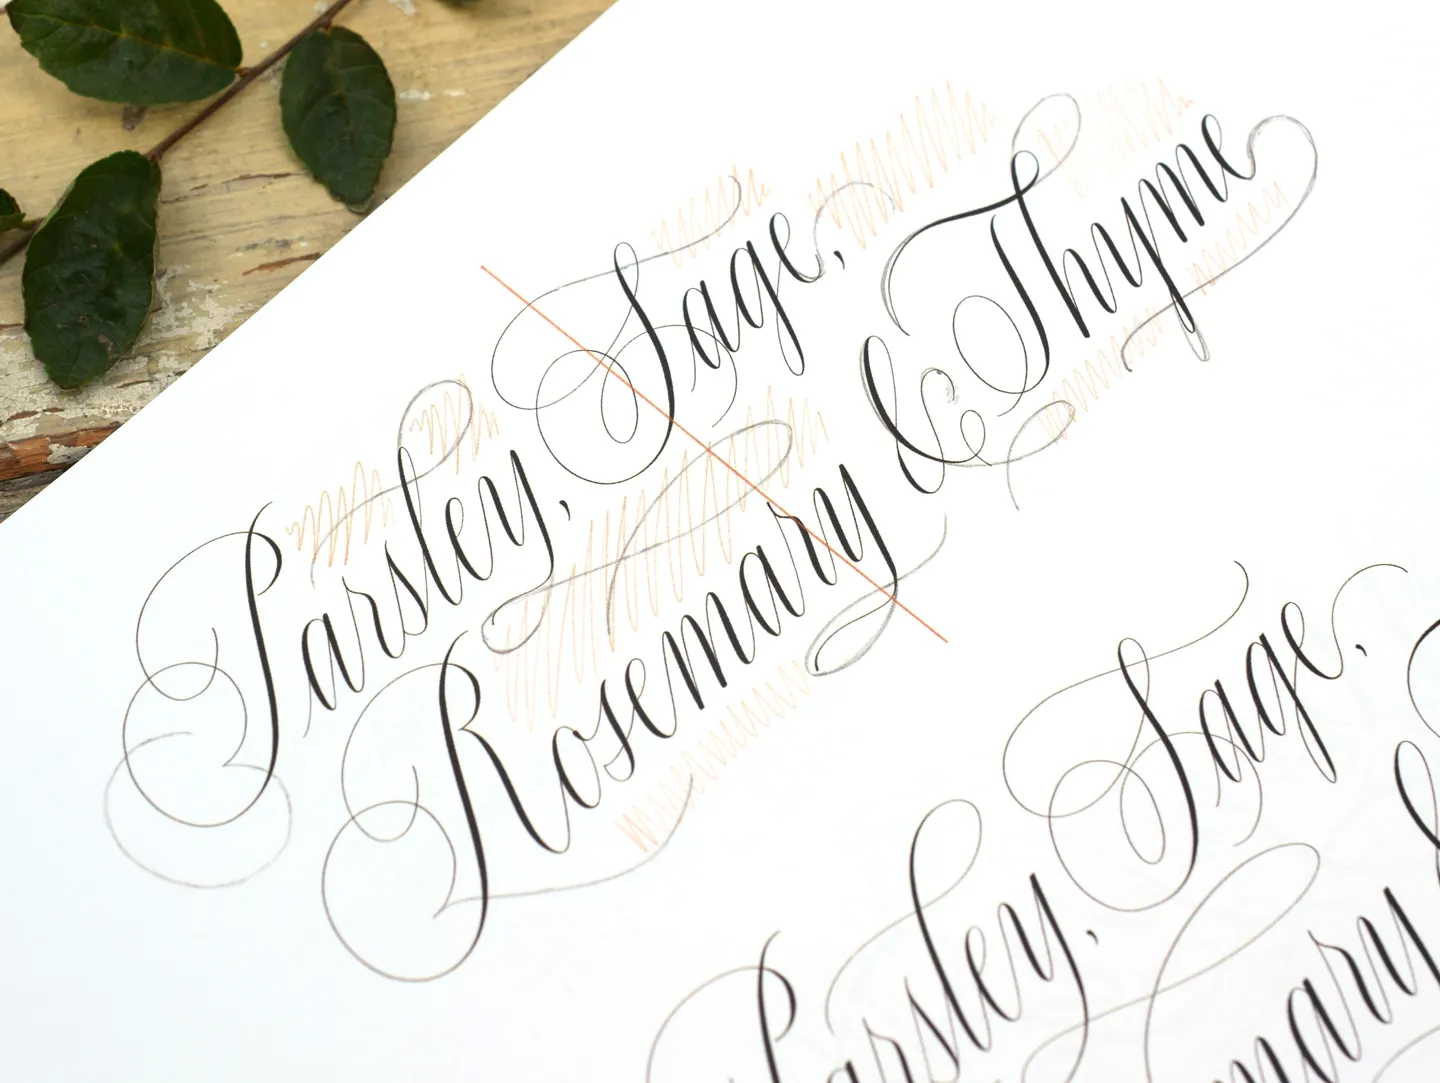 Parsley, Sage,
Rosemary & Thyme
Parsley, Sage,